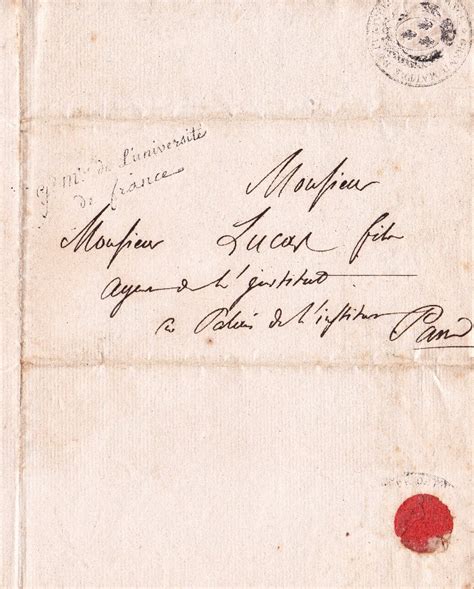 Gd Mtre de l'université
de france
Monsieur
Monsieur Lucas fils
agent de l'institut
au Palais de l'institut
Paris